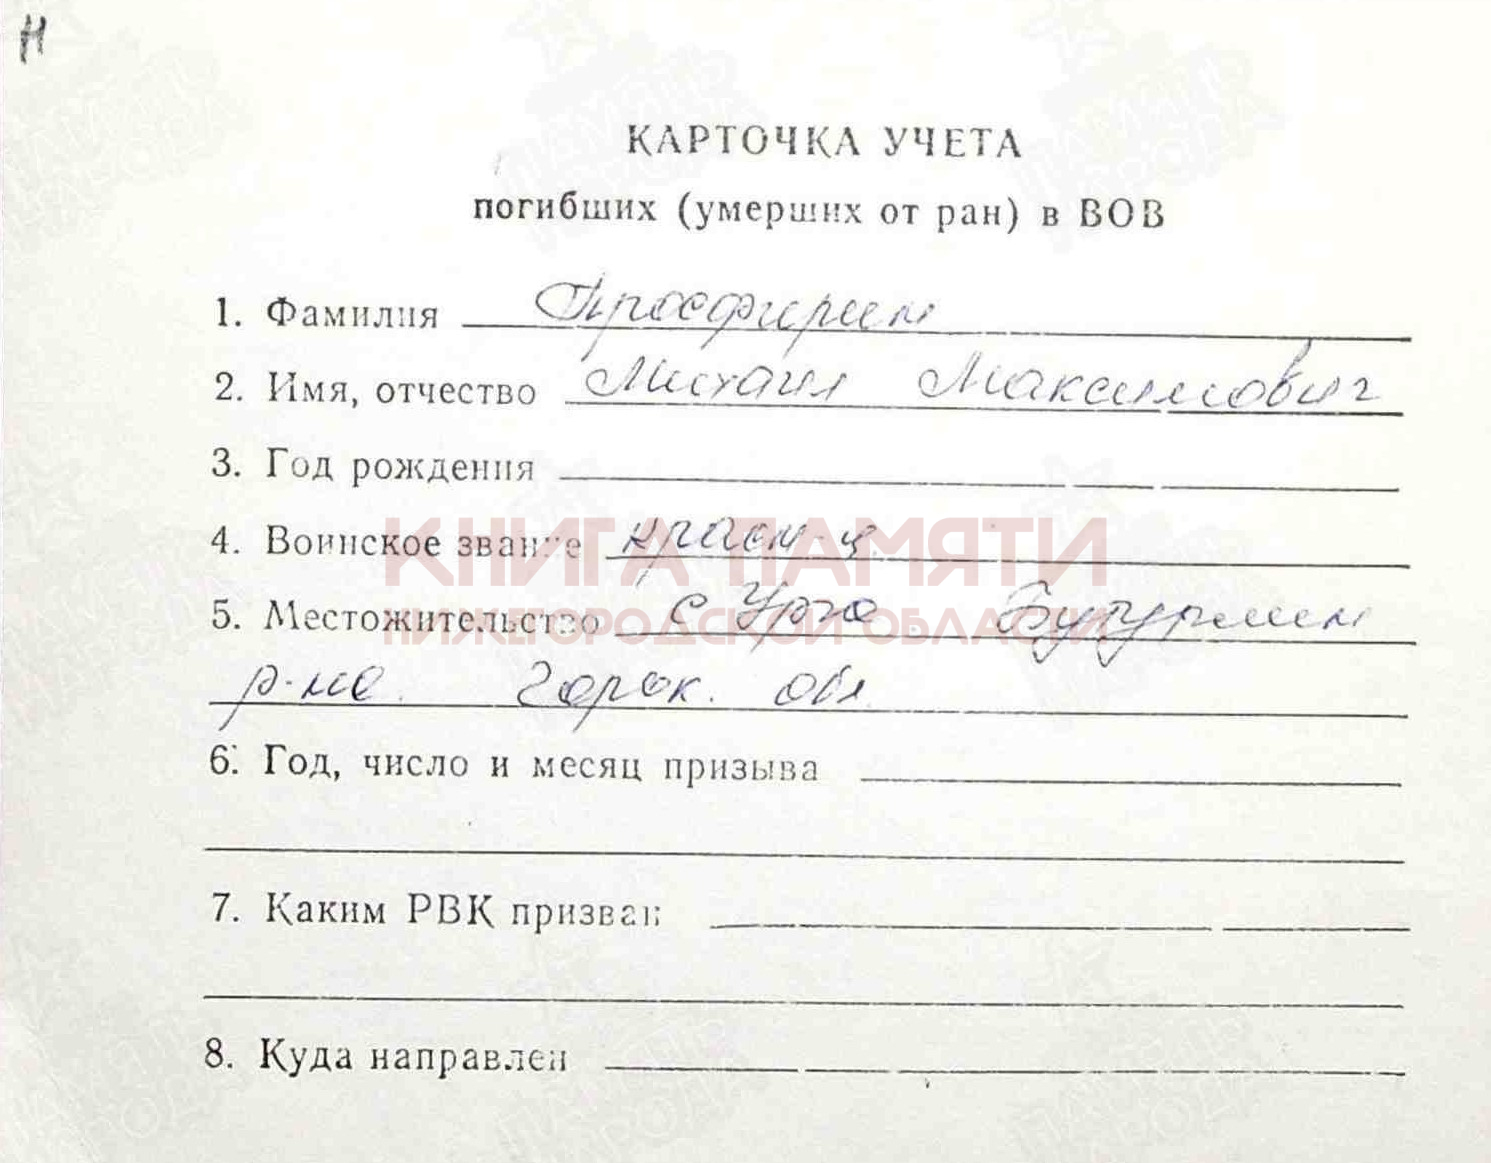 Н
КАРТОЧКА УЧЕТА
погибших (умерших от ран) в ВОВ
1. Фамилия Просфирин
2. Имя, отчество Михаил Максимович
3. Год рождения
4. Воинское звание красн-ц
5. Местожительство с Урга Бутурлин
р-на. Горьк. обл
6. Год, число и месяц призыва
7. Каким РВК призван
8. Куда направлен
КНИГА ПАМЯТИ
НИЖЕГОРОДСКОЙ ОБЛАСТИ